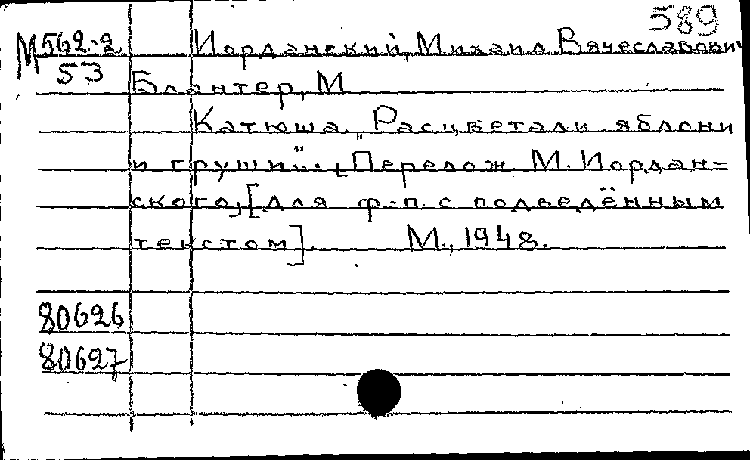 589
М562-2 Иорданский, Михаил Вячеславович
53
Блантер, М
Катюша. "Расцветали яблони
и груши". Перелож. М. Иордан=
ского, [для ф.-п. с подведённым
текстом]. М., 1948.
80626
80627